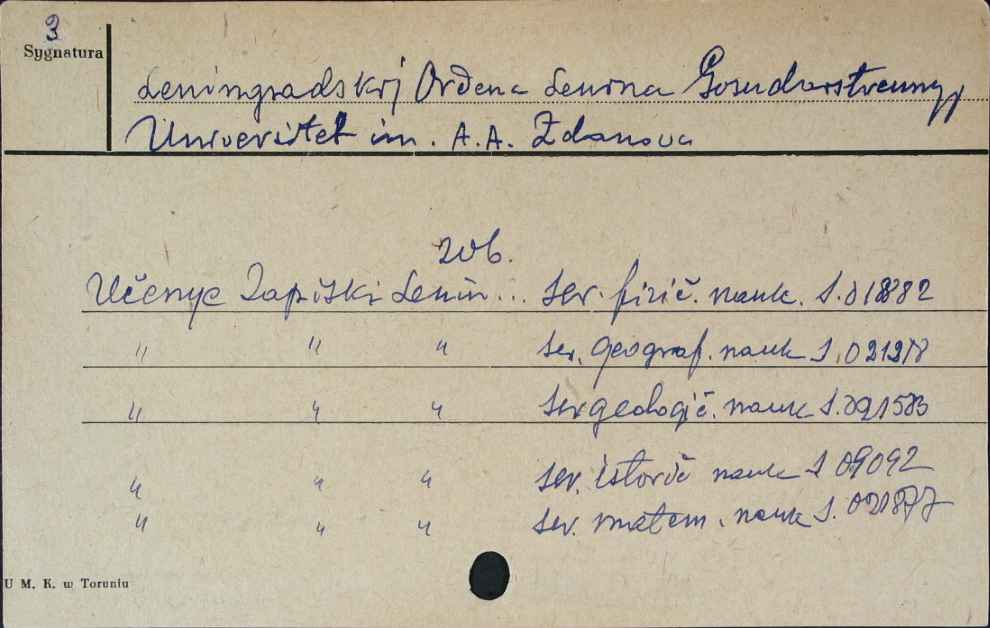 3
Sygnatura
Leningradskij Ordena Lenina Gosudarstvennyj
Universitet im. A.A. Ždanova
zob.
Učenye Zapiski Lenin... ser. fizič. nauk. S.
" " " ser. geograf. nauk S. 021278
" " " ser geologič. nauk S. 021583
" " " ser. istorič nauk S 09092
" " " ser. matem. nauk S. 021877
U M. K. w Toruniu